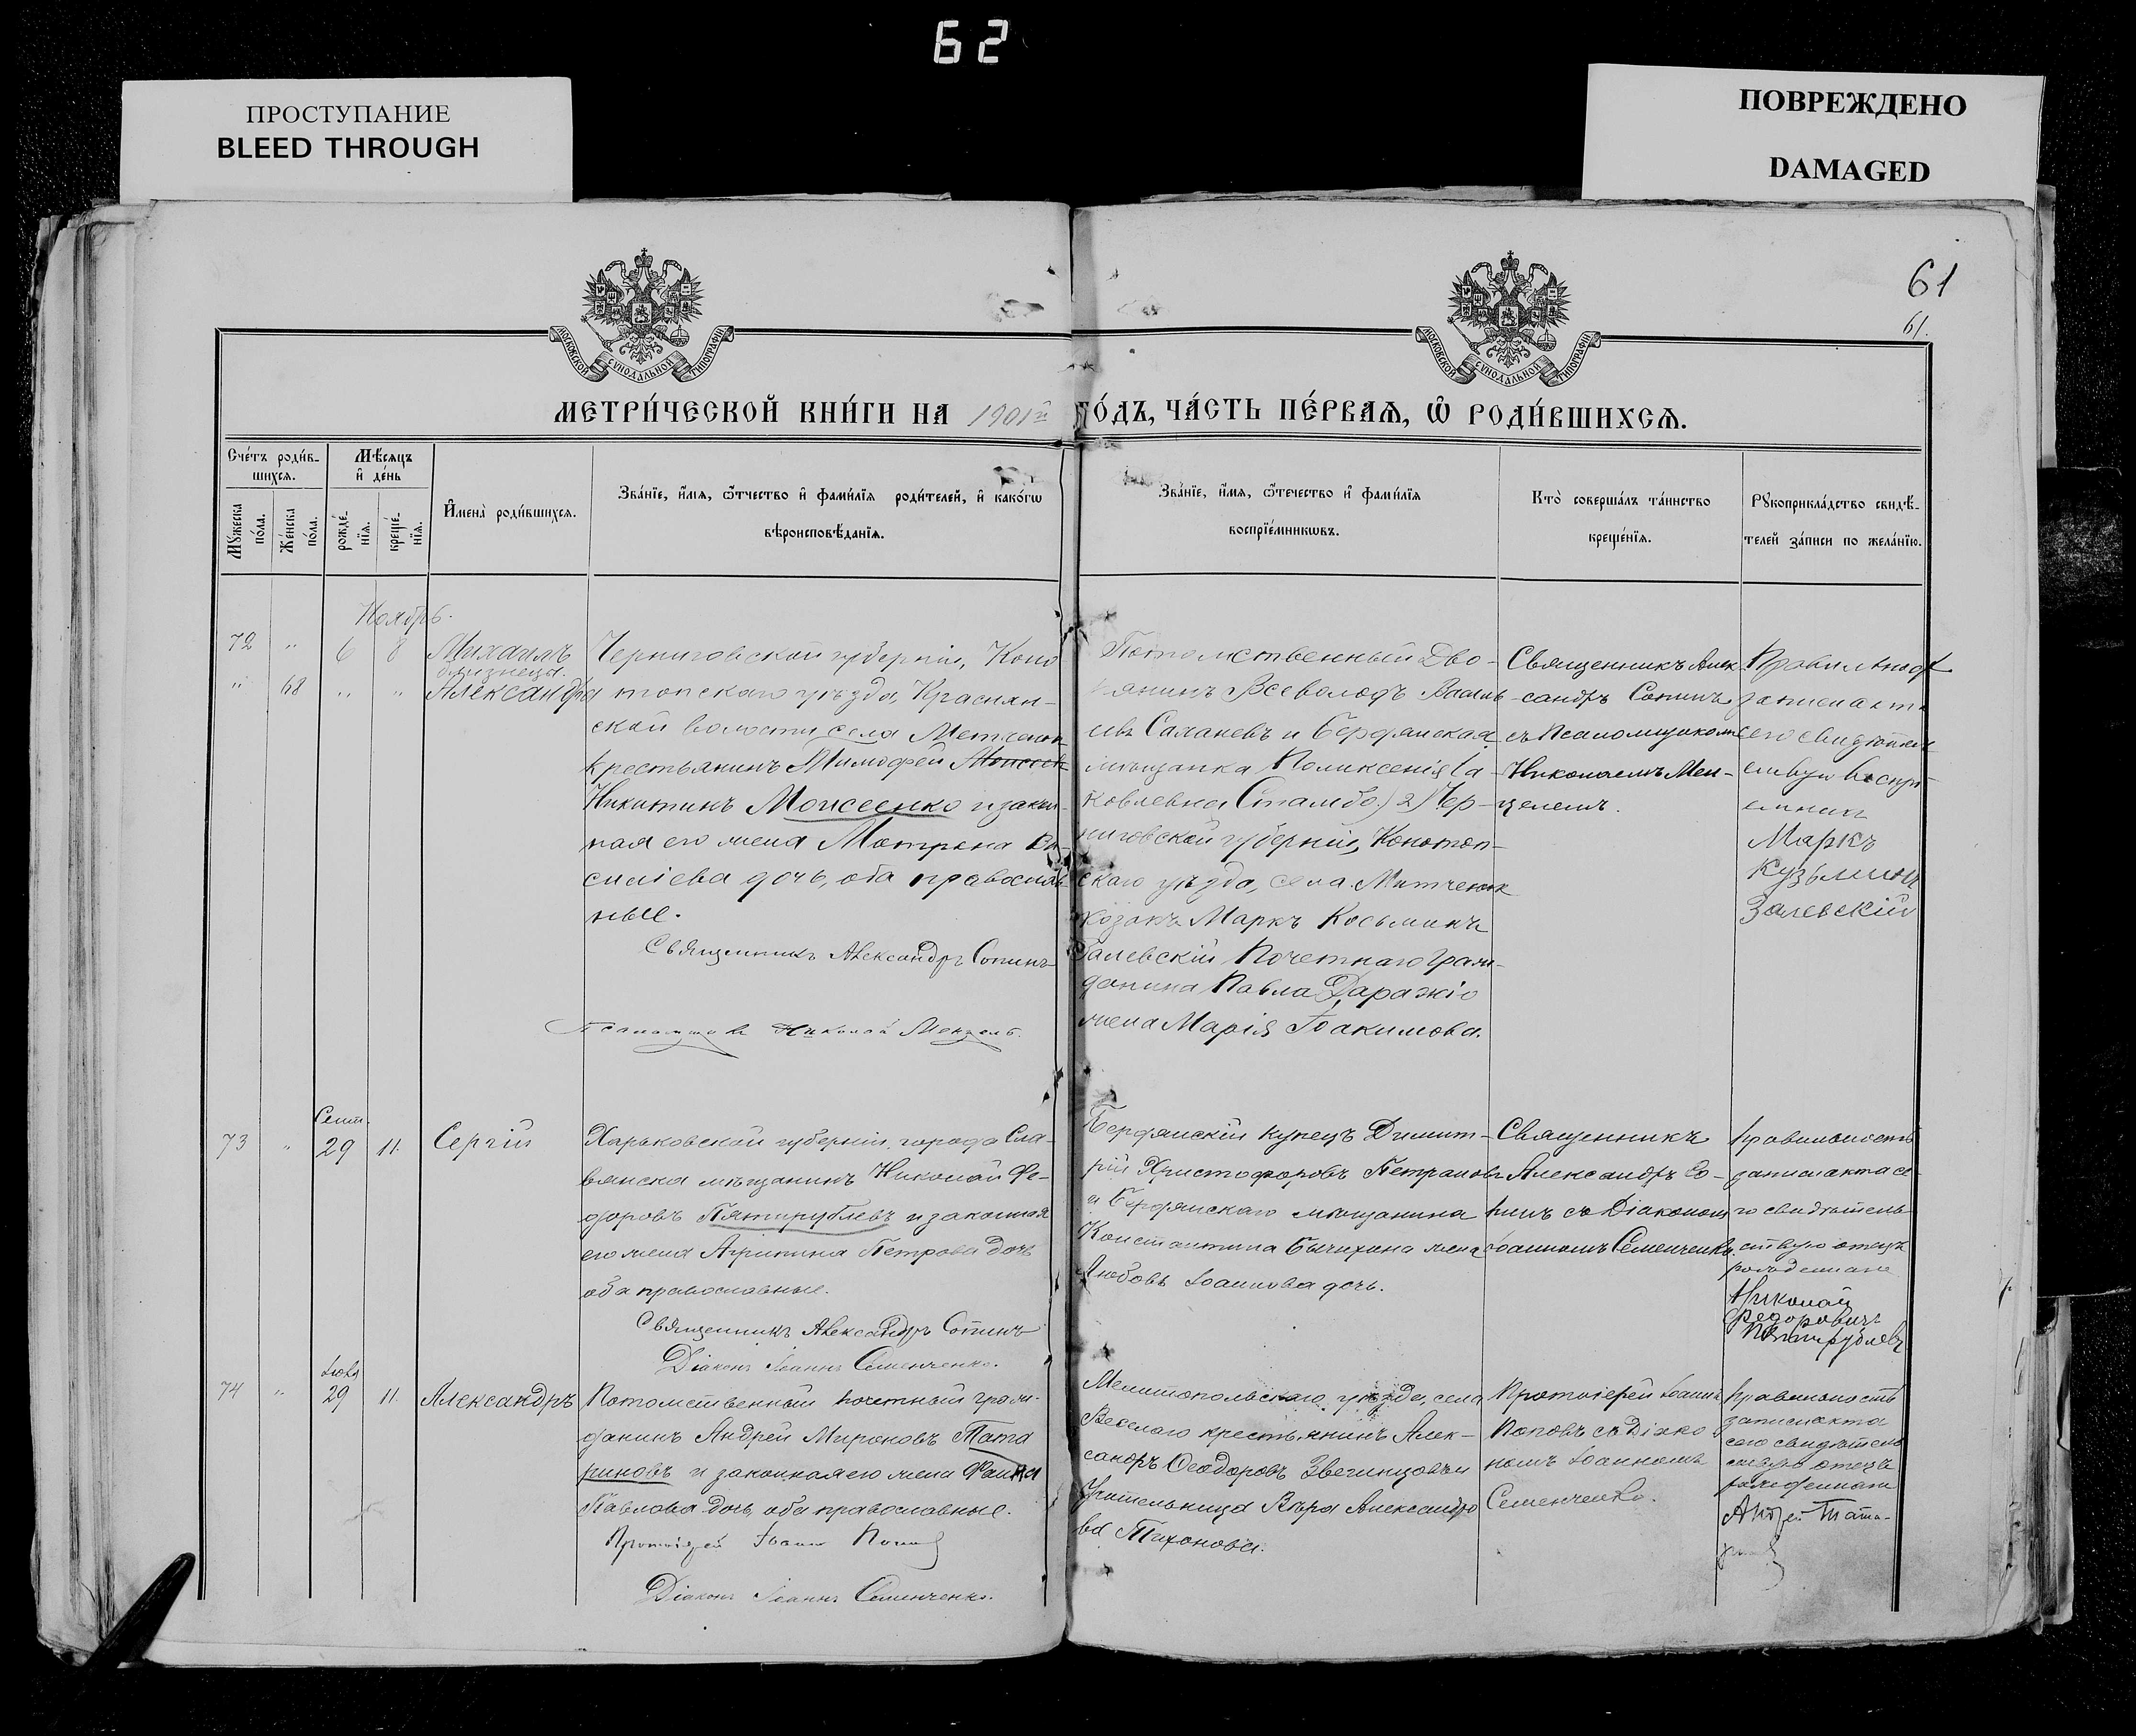 62
ПРОСТУПАНИЕ
BLEED THROUGH
ПОВРЕЖДЕНО
DAMAGED
61
61.
МОСКОВСКОЙ СѴНОДАЛЬНОЙ ТИПОГРАФІИ
МОСКОВСКОЙ СѴНОДАЛЬНОЙ ТИПОГРАФІИ
МЕТРИ́ЧЕСКОЙ КНИ́ГИ НА 1901й ГО́ДЪ, ЧА́СТЬ ПЕ́РВАѦ, Ѡ҆ РОДИ́ВШИХСѦ.
Сче́тъ роди́в-
шихсѧ.
Мꙋ́жеска по́ла.
Же́нска по́ла.
Мѣ́сѧцъ
и҆ де́нь
рожде́-
нїѧ.
креще́-
нїѧ.
И҆мена̀ роди́вшихсѧ.
Зва́нїе, и҆́мѧ, ѻ҆́тчество и҆ фами́лїѧ роди́телей, и҆ како́гѡ
вѣроисповѣ́данїѧ.
Зва́нїе, и҆́мѧ, ѻ҆́течество и҆ фами́лїѧ
воспрїе́мникѡвъ.
Кто̀ соверша́лъ та́инство
креще́нїѧ.
Рꙋкоприкла́дство свидѣ́-
телей за́писи по жела́нїю.
Ноябрь.
72 " 6 8 Михаилъ
близнецы.
" 68 " " Александра
Черниговской губерніи, Коно
топскаго уѣзда, Краснян-
ской волости села Метченок
крестьянинъ Тимофей
Никитинъ Моисеенко и закон-
ная его жена Матрона Ва-
силіева дочь, оба православ-
ные.
Священникъ Александръ Сопинъ
Николай Менцель.
Потомственный Дво-
рянинъ Всеволодъ Василь-
евъ Саханевъ и Бердянская
мѣщанка Поликсенія (а
ковлевна Стамбо.) 2) Чер-
ниговской губерніи, Конотоп-
скаго уѣзда, села Митченок
козакъ Маркъ Косьминъ
Залевскій Почетнаго Граж-
данина Павла Даражіо
жена Марія Іоакимова.
Священникъ Алек
сандръ Сопинъ
съ Псаломщикомъ
Николаемъ Мен-
целемъ.
Маркъ
Кузьминъ
Залевскій
Сент.
73 " 29 11. Сергій
Харьковской губерніи, города Сла-
вянска мѣщанинъ Николай Фе-
доровъ Пятирублевъ и законная
его жена Агрипина Петрова дочь
оба православные.
Священникъ Александръ Сопинъ
Діаконъ Іоаннъ Семенченко.
Бердянскій купецъ Димит-
рій Христофоровъ Петрановъ
и Бердянскаго мѣщанина
Константина Бычихина жена
Любовь Іоаннова дочь.
Священникъ
Александръ Со-
пинъ съ Діакономъ
Іоанномъ Семенченко.
Правильность
записи акта се
го свидѣтель-
ствую отецъ
рожденнаго
Николай
Федоровичъ
Пятирублевъ
74 " 29 11. Александръ
Потомственный почетный граж-
данинъ Андрей Мироновъ Тата
риновъ и законная его жена Фаина
Павлова дочь, оба православные.
Протоіерей Іоаннъ Поповъ
Діаконъ Іоаннъ Семенченко.
Мелитопольскаго уѣзда, села
Веселаго крестьянинъ Алек-
сандръ Ѳеодоровъ Звегинцовъ и
Учительница Вѣра Александро
ва Тихонова.
Протоіерей Іоаннъ
Поповъ съ Діако
номъ Іоанномъ
Семенченко.
Правильность
записи акта
сего свидѣтель
ствую отецъ
рожденнаго
Андрей Тата-